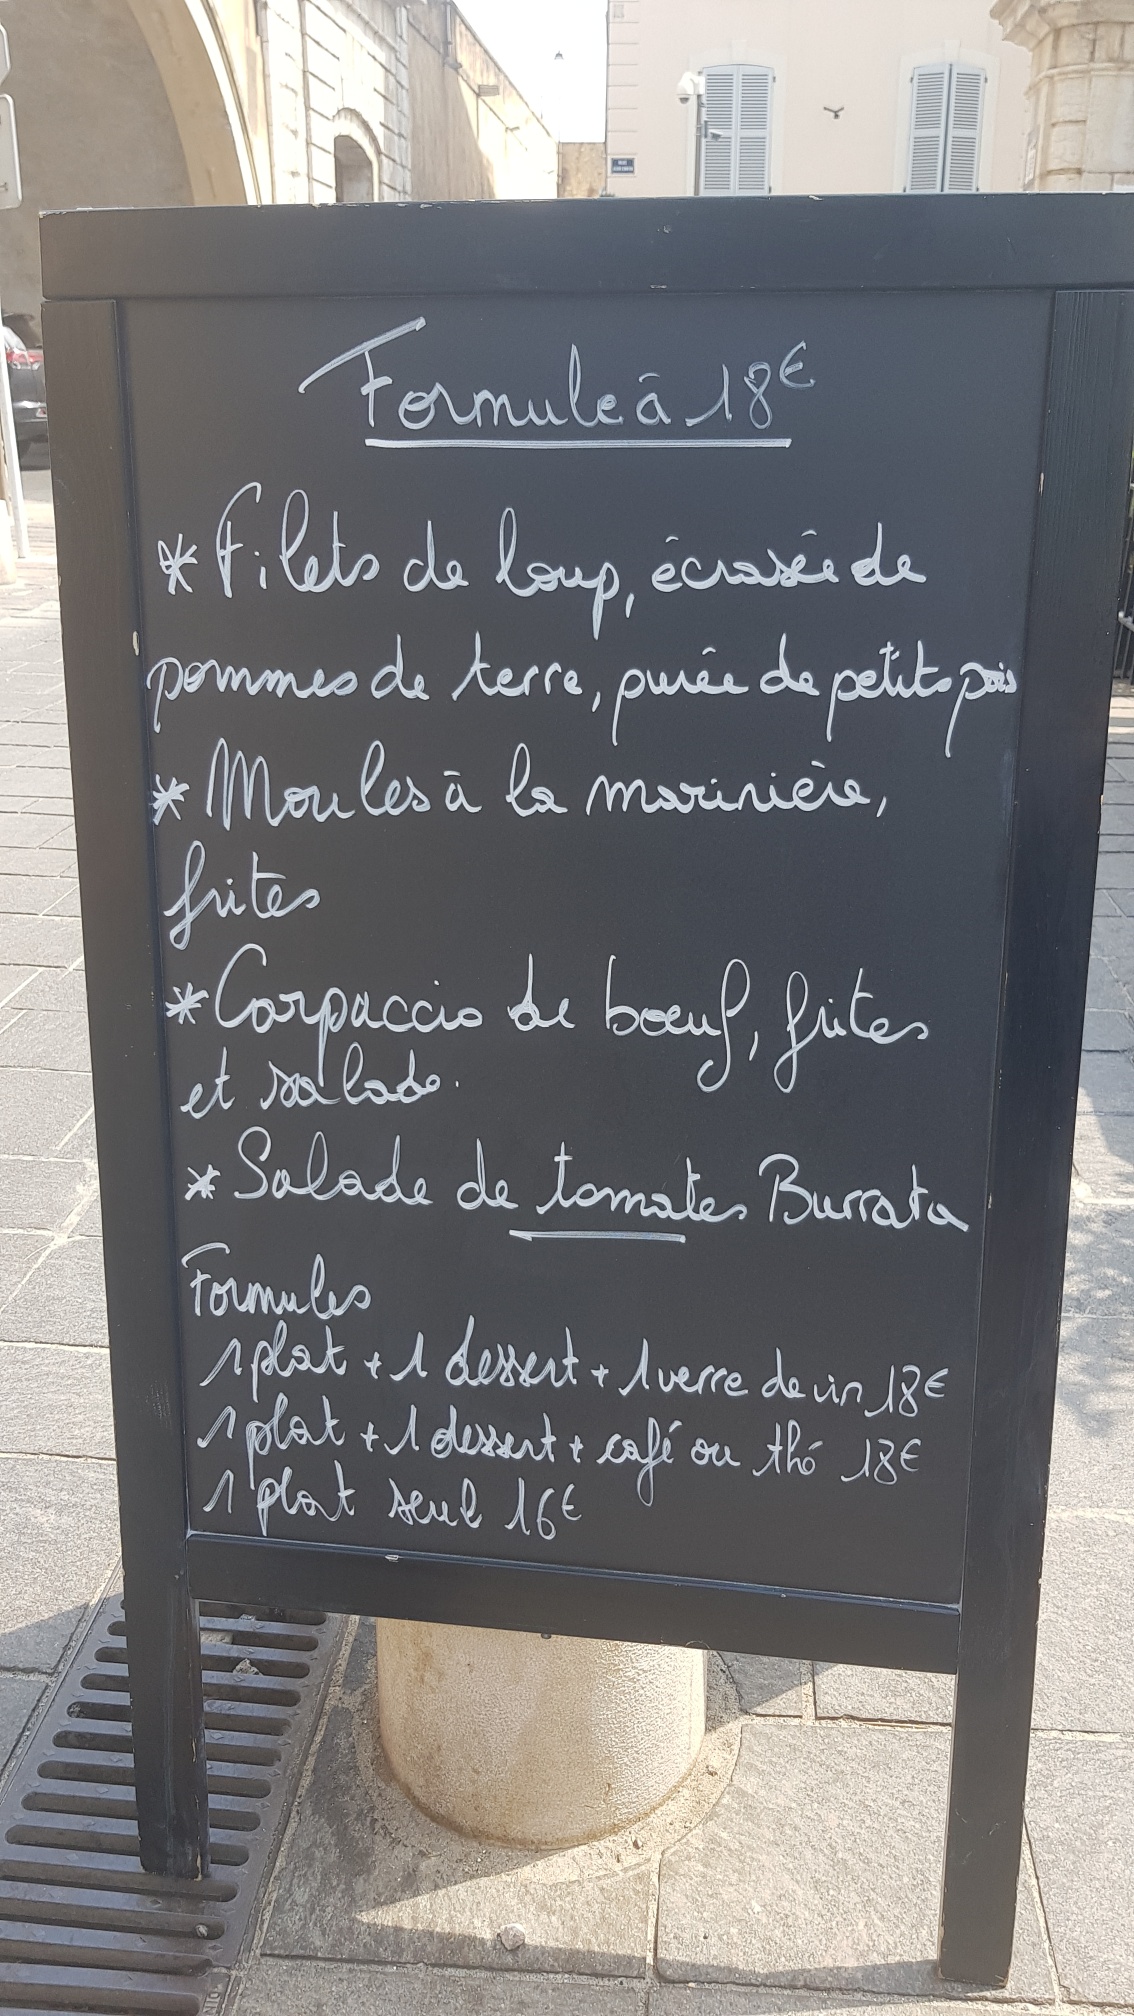 Formule à 18€
* Filets de loup, écrasée de
pommes de terre, purée de petits pois
* Moules à la marinière,
frites
* Carpaccio de bœuf, frites
et salade.
* Salade de tomates Burrata
Formules
1 plat + 1 dessert + 1 verre de vin 18€
1 plat + 1 dessert + café ou thé 18€
1 plat seul 16€